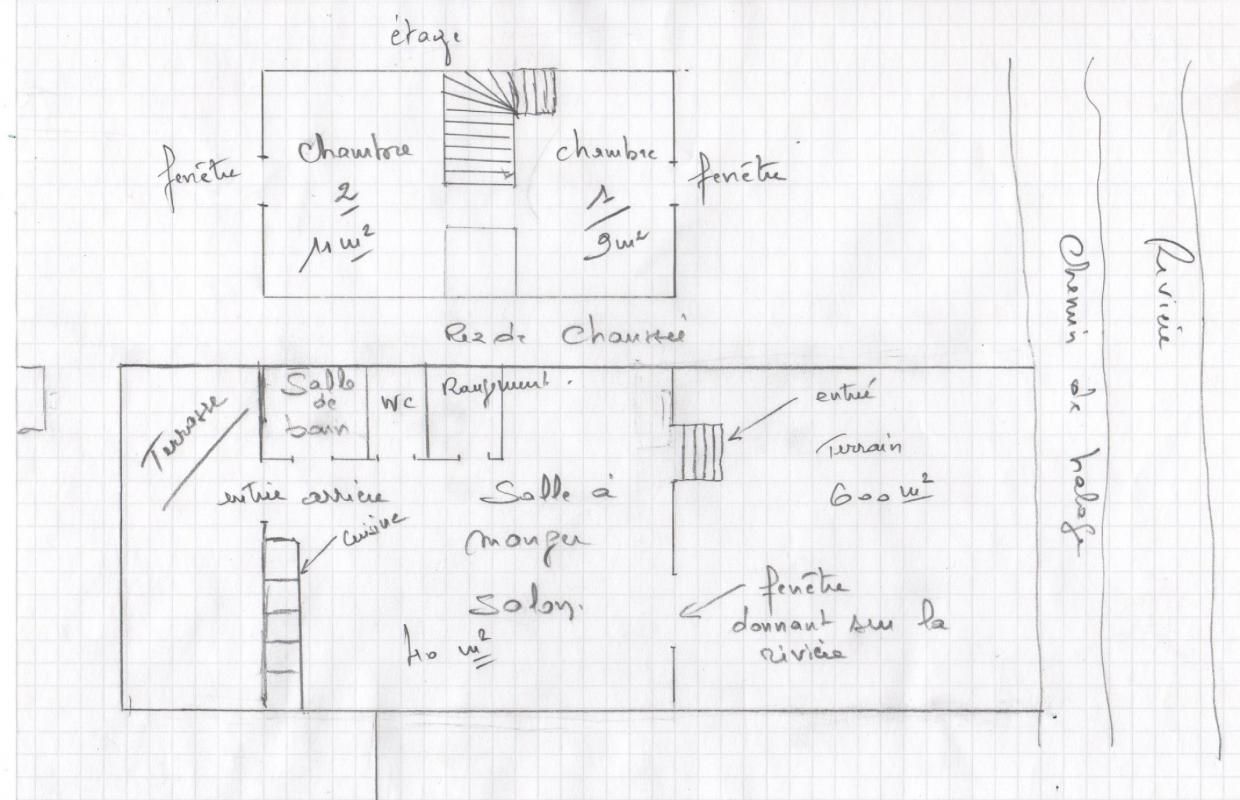 étage
fenêtre
Chambre
2
11 m²
chambre
1
9 m²
fenêtre
Rez de Chaussée
Terrasse
Salle
de
bain
WC
Rangement.
entrée
Terrain
600 m²
entrée arrière
cuisine
Salle à
manger
Salon.
40 m²
fenêtre
donnant sur la
rivière
Chemin de halage
Rivière